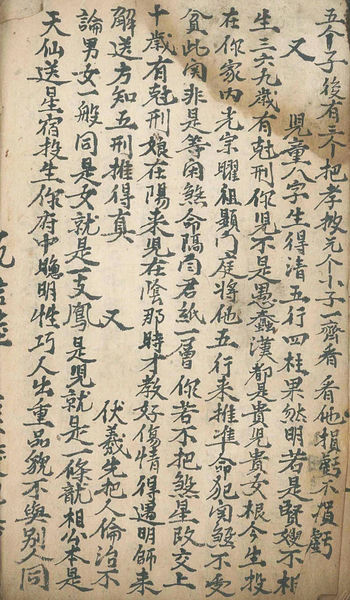 五个子後有三个把孝披元个小子一齊看看他損虧不損虧
又 児童八字生得清五行四柱果然明若是賢嫂不相
生三六九歲有尅刑你児不是愚蠢漢都是貴児貴女根今生投
在你家內光宗耀祖顯門庭將他五行来推準命犯関煞不受
貧此関非是等闲煞命隔同君紙一層你若不把煞星改交上
十歲有尅刑娘在陽来児在陰那時才教好傷情得遇明師来
解送方知五刑推得真 又 伏羲生把人倫治不
論男女一般同是女就是一支鳳是児就是一條龍相公本是
天仙送星宿投生你府中聰明性巧人出重品貌不與別人同